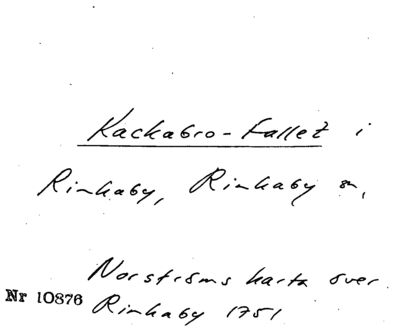 Kackabro-fallet i
Rinkaby, Rinkaby sn,
Norströms karta över
Nr 10876 Rinkaby 1751